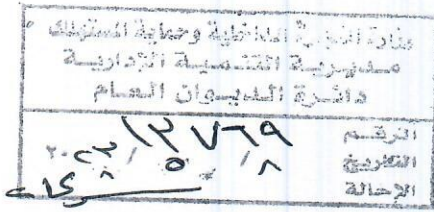 وزارة التجارة الداخلية وحماية المستهلك
مديرية التنمية الإدارية
دائرة الديوان العام
الرقم ١٣٧٦٩
التاريخ ٨ / ٥ / ٢٠٢٣
الإحالة